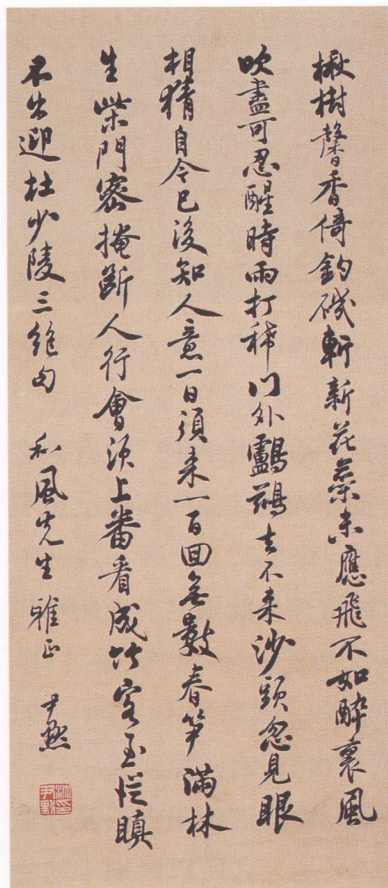 楸樹馨香倚釣磯斬新花蕊未應飛不如醉裏風
吹盡可忍醒時雨打稀門外鸕鶿去不来沙頭忽見眼
相猜自今已後知人意一日須来一百回無數春笋滿林
生柴門密掩斷人行會須上番看成竹客至從瞋
不出迎杜少陵三絕句 和風先生雅正 尹默